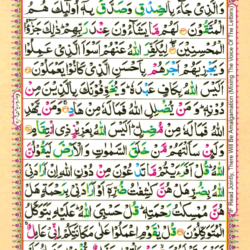 وَالَّذِىْ جَآءَ بِالصِّدْقِ وَصَدَّقَ بِهٖۤ اُولٰٓئِكَ هُمُ
الْمُتَّقُوْنَ لَهُمْ مَّا يَشَآءُوْنَ عِنْدَ رَبِّهِمْ ذٰلِكَ جَزٰٓؤُا
الْمُحْسِنِيْنَ لِيُكَفِّرَ اللّٰهُ عَنْهُمْ اَسْوَاَ الَّذِىْ عَمِلُوْا
وَيَجْزِيَهُمْ اَجْرَهُمْ بِاَحْسَنِ الَّذِىْ كَانُوْا يَعْمَلُوْنَ
اَلَيْسَ اللّٰهُ بِكَافٍ عَبْدَهٗ وَيُخَوِّفُوْنَكَ بِالَّذِيْنَ مِنْ
دُوْنِهٖ وَمَنْ يُّضْلِلِ اللّٰهُ فَمَا لَهٗ مِنْ هَادٍ وَمَنْ يَّهْدِ
اللّٰهُ فَمَا لَهٗ مِنْ مُّضِلٍّ اَلَيْسَ اللّٰهُ بِعَزِيْزٍ ذِى انْتِقَامٍ
وَلَئِنْ سَاَلْتَهُمْ مَّنْ خَلَقَ السَّمٰوٰتِ وَالْاَرْضَ لَيَقُوْلُنَّ
اللّٰهُ قُلْ اَفَرَءَيْتُمْ مَّا تَدْعُوْنَ مِنْ دُوْنِ اللّٰهِ اِنْ اَرَادَنِىَ
اللّٰهُ بِضُرٍّ هَلْ هُنَّ كٰشِفٰتُ ضُرِّهٖۤ اَوْ اَرَادَنِىْ بِرَحْمَةٍ هَلْ
هُنَّ مُمْسِكٰتُ رَحْمَتِهٖ قُلْ حَسْبِىَ اللّٰهُ عَلَيْهِ يَتَوَكَّلُ
الْمُتَوَكِّلُوْنَ قُلْ يٰقَوْمِ اعْمَلُوْا عَلٰى مَكَانَتِكُمْ اِنِّىْ عَامِلٌ
There Will Be Amalgamation (Mixing) The Voice Of The Letters